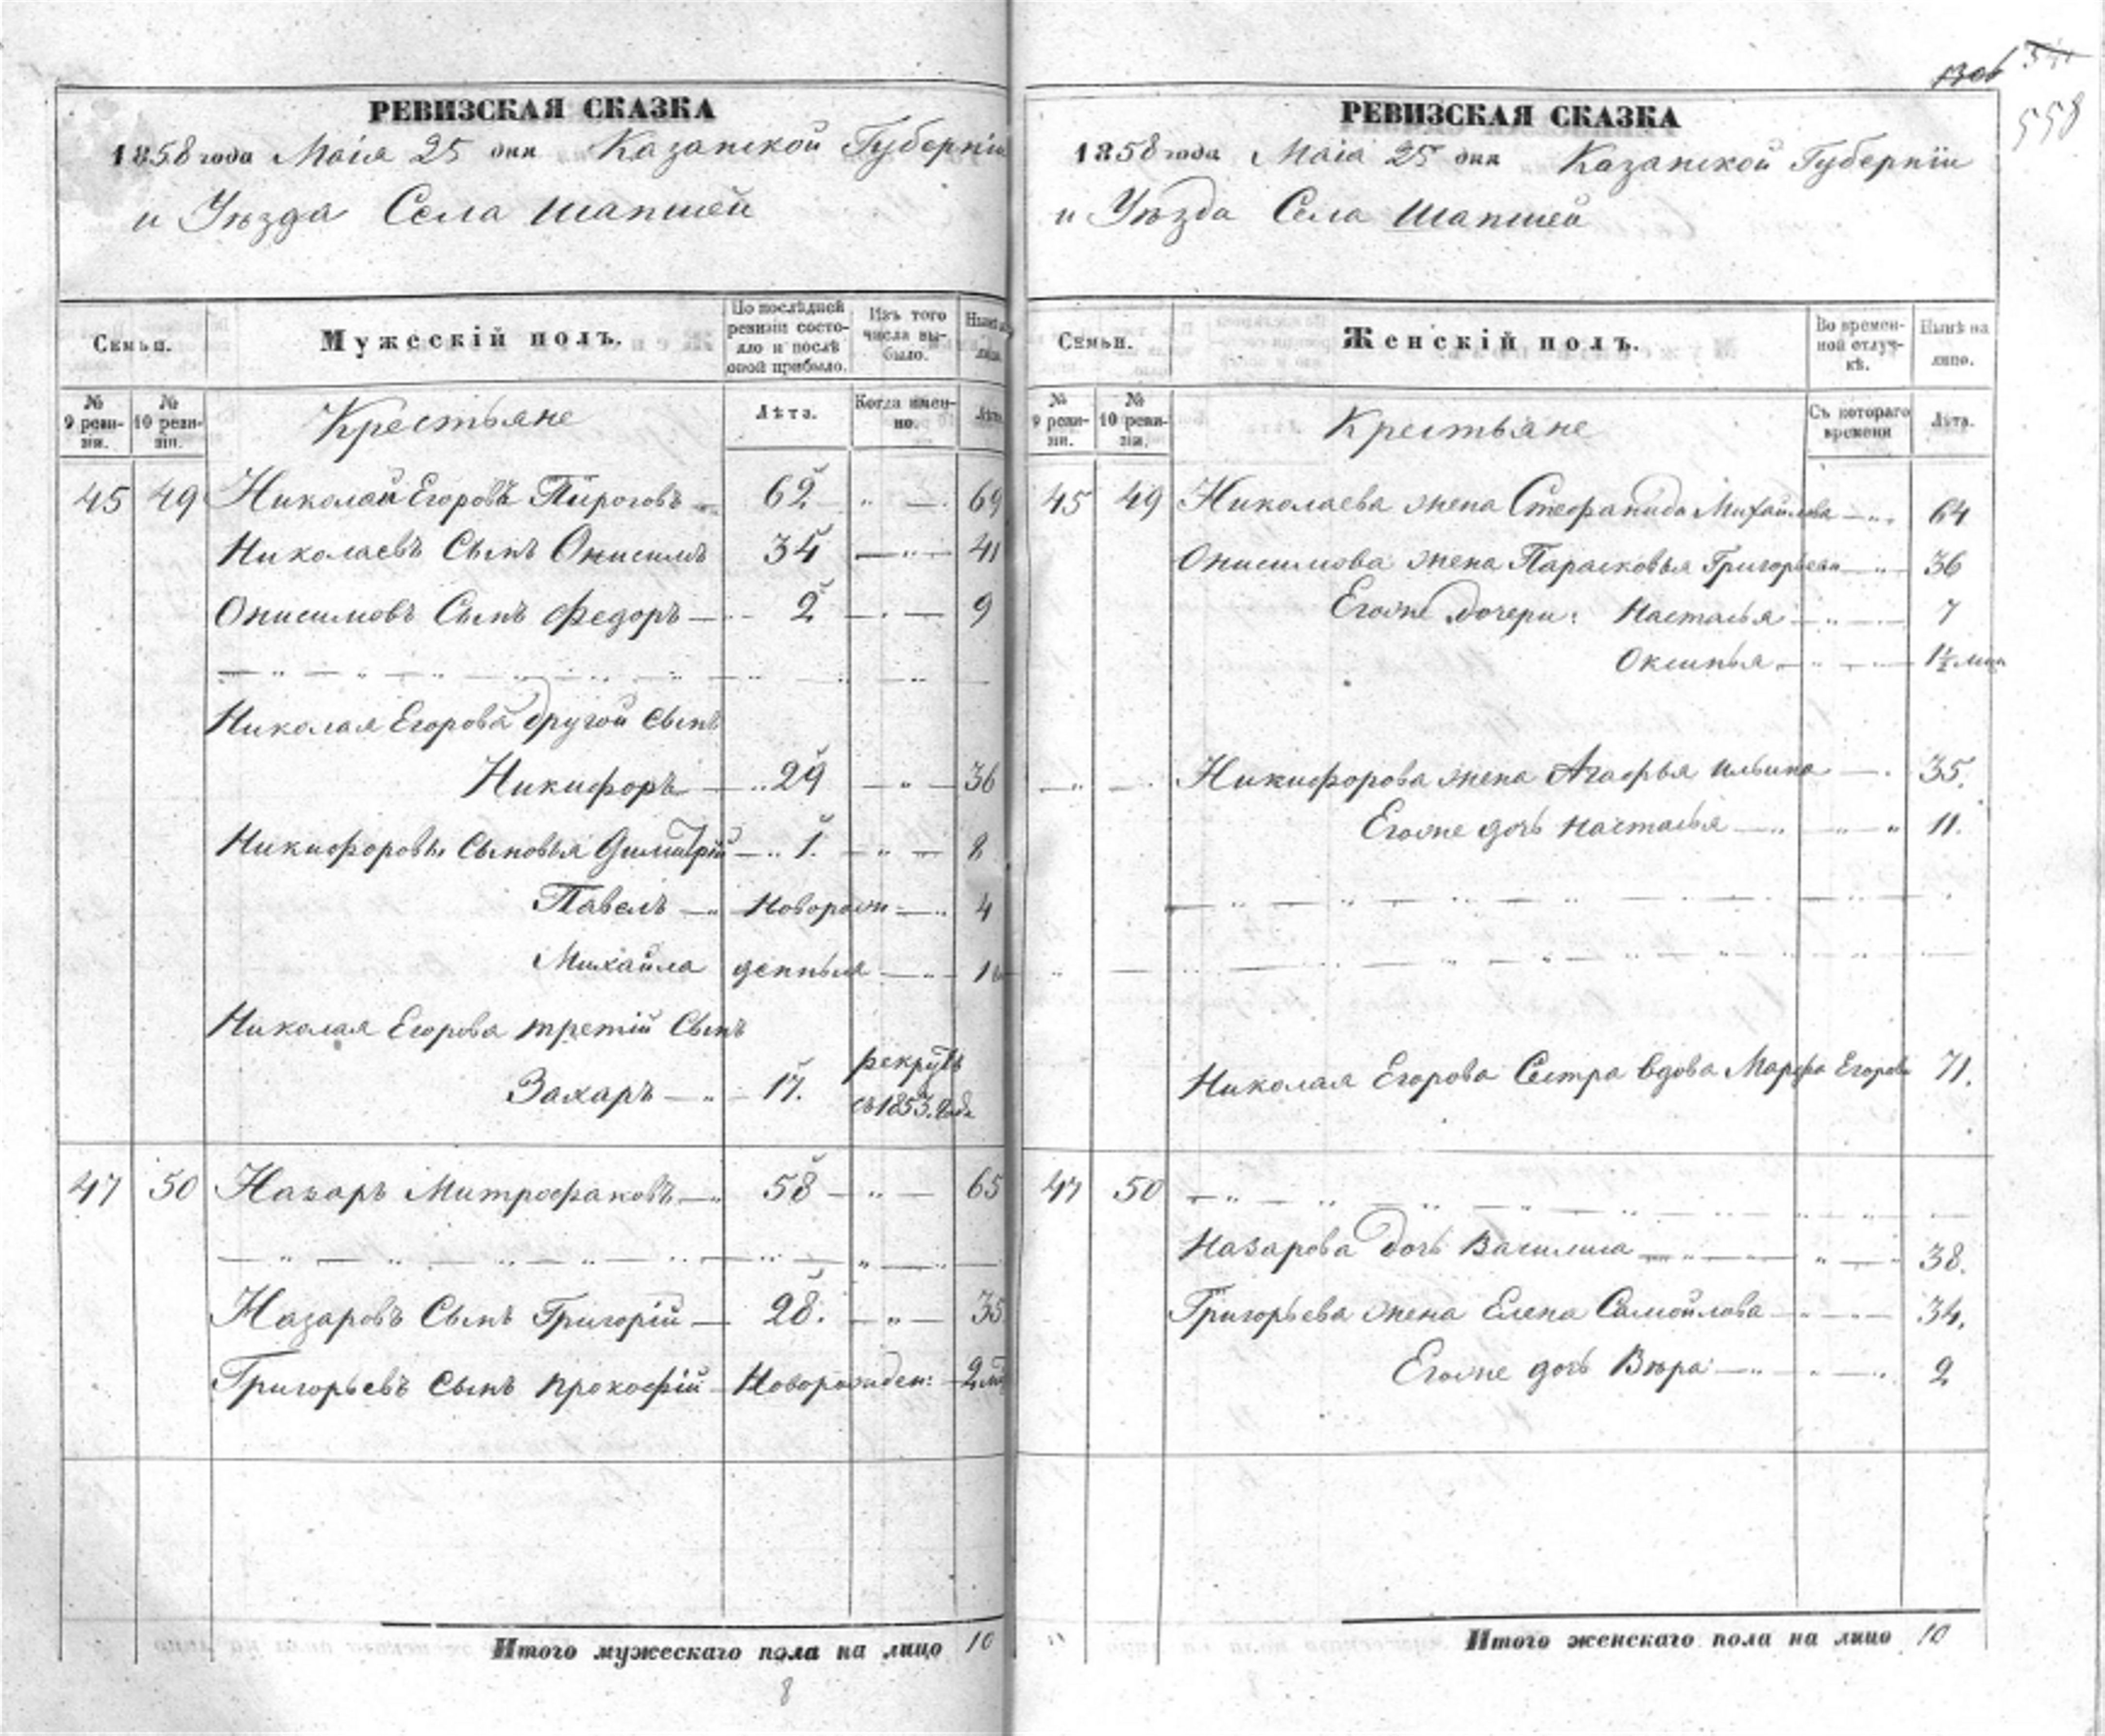 РЕВИЗСКАЯ СКАЗКА
1858 года Маія 25 дня Казанской Губерніи
и Уѣзда Села Шапшей
Семьи.
Мужескій полъ.
По послѣдней ревизіи состояло и послѣ оной прибыло.
Изъ того числа выбыло.
Нынѣ
№ 9 ревизіи.
№ 10 ревизіи.
Крестьяне
Лѣта.
Когда именно.
Лѣта.
45 49 Николай Егоровъ Пироговъ 62 69
Николаевъ Сынъ Онисимъ 34 41
Онисимовъ Сынъ Федоръ 2 9
Николая Егорова другой Сынъ
Никифоръ 29 36
Никифоровы Сыновья Димитрій 1. 8
Павелъ Миновorож 4
Михайла денныя
Николая Егорова третій Сынъ
Захаръ 17. рекрутъ
съ 1853. года
47 50 Назаръ Митрофановъ 58 65
Назаровъ Сынъ Григорій 28. 35
Григорьевъ Сынъ Прокофій Новорожден: 2
Итого мужескаго пола на лицо 10
8
558
РЕВИЗСКАЯ СКАЗКА
1858 года Маіа 25 дня Казанской Губерніи
и Уѣзда Села Шапшей
Семьи.
Женскій полъ.
Во временной отлучкѣ.
Нынѣ на лицо.
№ 9 ревизіи.
№ 10 ревизіи.
Крестьяне
Съ котораго времени
Лѣта.
45 49 Николаева жена Стефанида Михайлова 64
Онисимова жена Парасковья Григорьева 36
Егожe дочери: Настасья 7
Оксинья 1½ мѣс
Никифорова жена Агафья Ильина 35.
Егоже дочь Настасья 11.
Николая Егорова Сестра вдова Марфа Егорова 71.
47 50
Назарова дочь Василиса 38.
Григорьева жена Елена Самойлова 34.
Егоже дочь Вѣра 2
Итого женскаго пола на лицо 10